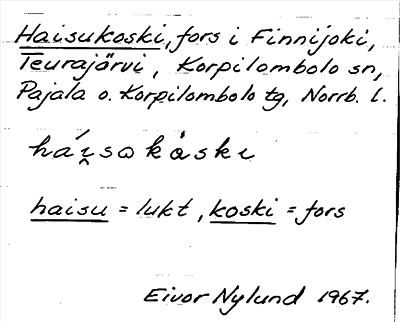 Haisukoski, fors i Finnijoki,
Teurajärvi, Korpilombolo sn,
Pajala o. Korpilombolo tg, Norrb. l.
hái̯sɷkåski
haisu = lukt, koski = fors
Eivor Nylund 1967.